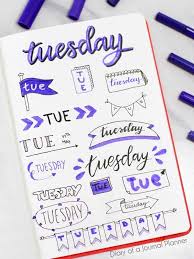 tuesday
tue
TUE
tue
TUE
TUE
tuesday
TUESDAY
tuesday
tuesday
TUE
tue
TUESDAY
tuesday
TUESDAY
Diary of a Journal Planner